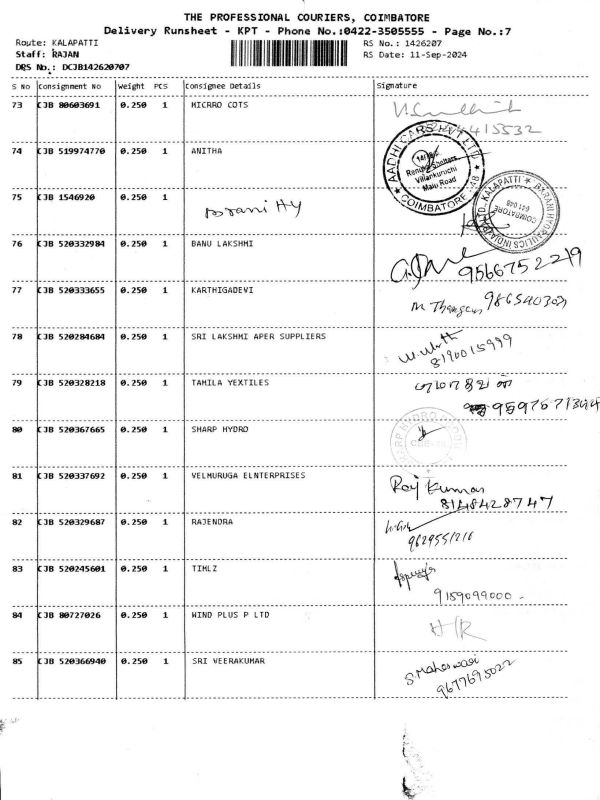 THE PROFESSIONAL COURIERS, COIMBATORE
Delivery Runsheet - KPT - Phone No.:0422-3505555 - Page No.:7
Route: KALAPATTI RS No.: 1426207
Staff: RAJAN RS Date: 11-Sep-2024
DRS No.: DCJB142620707
S No Consignment No Weight PCS Consignee Details Signature
73 CJB 80603691 0.250 1 MICRRO COTS
74 CJB 519974770 0.250 1 ANITHA
AADHI CARS
Villankuruchi
Main Road
COIMBATORE
75 CJB 1546920 0.250 1
76 CJB 520332984 0.250 1 BANU LAKSHMI
9566752219
77 CJB 520333655 0.250 1 KARTHIGADEVI
78 CJB 520284684 0.250 1 SRI LAKSHMI APER SUPPLIERS
8190015999
79 CJB 520328218 0.250 1 TAMILA YEXTILES
80 CJB 520367665 0.250 1 SHARP HYDRO
81 CJB 520337692 0.250 1 VELMURUGA ELNTERPRISES
Raj Kumar
8148428747
82 CJB 520329687 0.250 1 RAJENDRA
9629551216
83 CJB 520245601 0.250 1 TIMLZ
9159099000
84 CJB 80727026 0.250 1 WIND PLUS P LTD
85 CJB 520366940 0.250 1 SRI VEERAKUMAR
S. Maheswari
9677695022